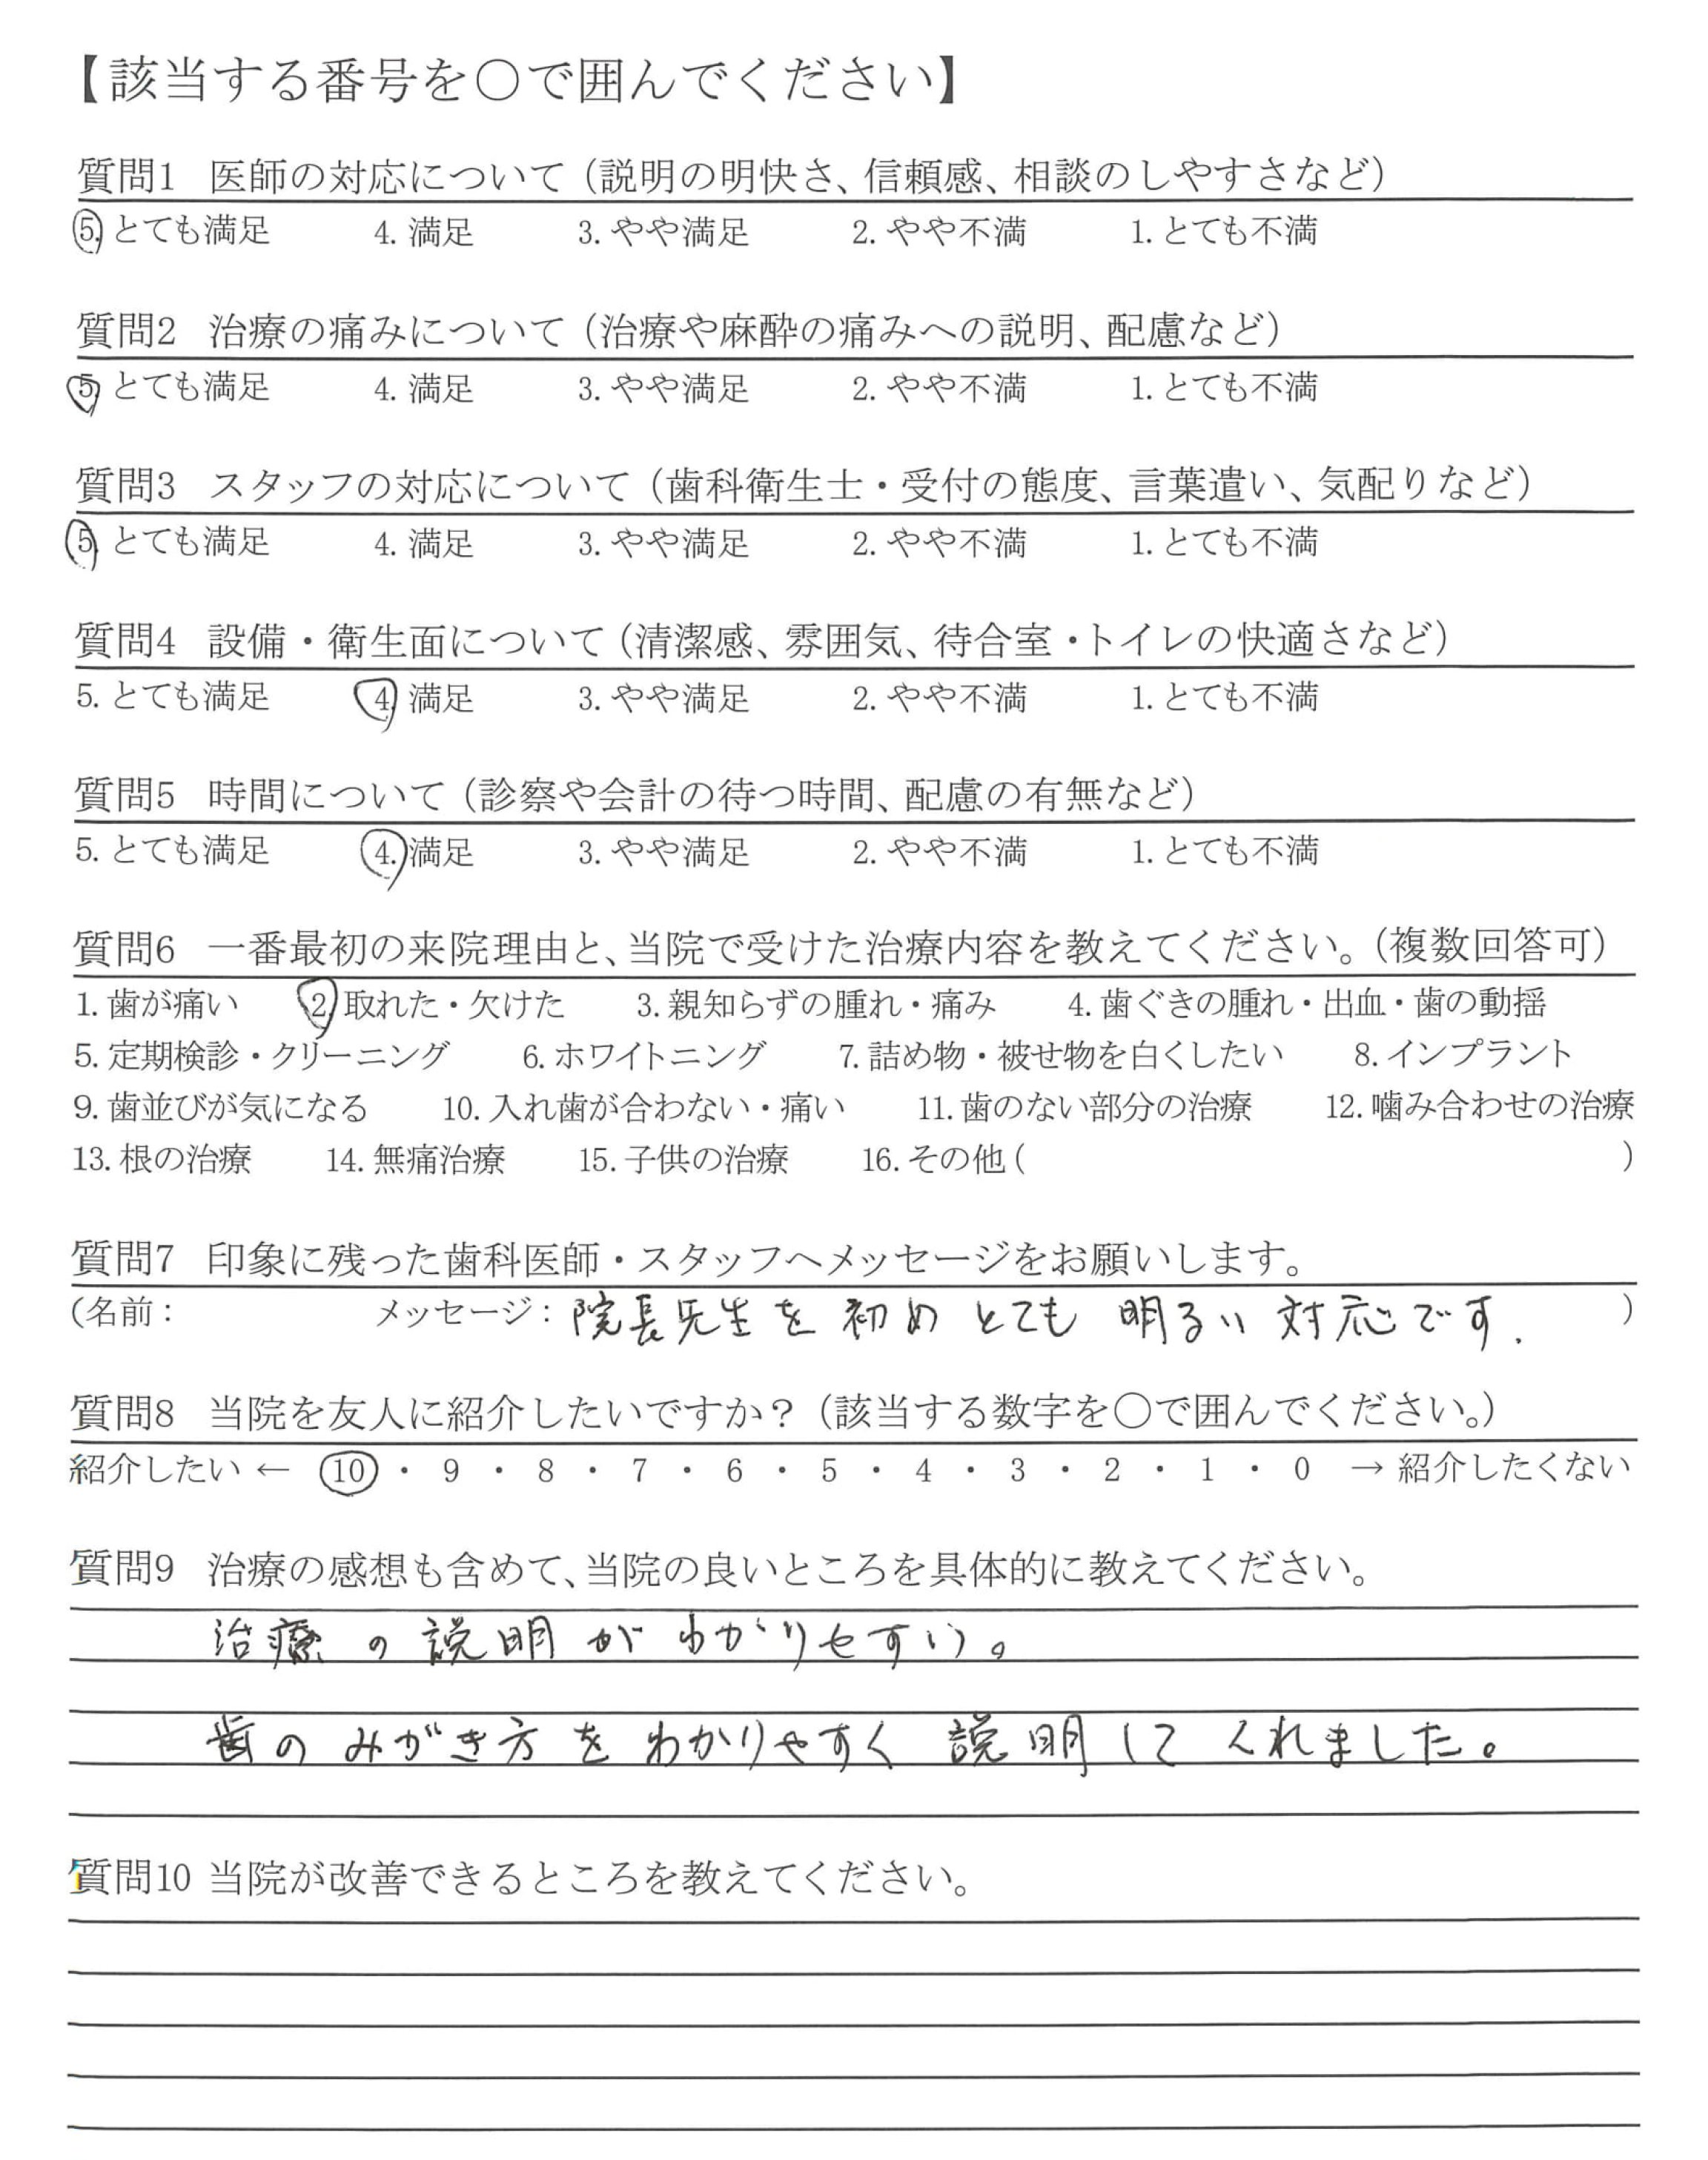 【該当する番号を○で囲んでください】
質問1 医師の対応について（説明の明快さ、信頼感、相談のしやすさなど）
5. とても満足 4. 満足 3. やや満足 2. やや不満 1. とても不満
質問2 治療の痛みについて（治療や麻酔の痛みへの説明、配慮など）
5. とても満足 4. 満足 3. やや満足 2. やや不満 1. とても不満
質問3 スタッフの対応について（歯科衛生士・受付の態度、言葉遣い、気配りなど）
5. とても満足 4. 満足 3. やや満足 2. やや不満 1. とても不満
質問4 設備・衛生面について（清潔感、雰囲気、待合室・トイレの快適さなど）
5. とても満足 4. 満足 3. やや満足 2. やや不満 1. とても不満
質問5 時間について（診察や会計の待つ時間、配慮の有無など）
5. とても満足 4. 満足 3. やや満足 2. やや不満 1. とても不満
質問6 一番最初の来院理由と、当院で受けた治療内容を教えてください。（複数回答可）
1. 歯が痛い 2. 取れた・欠けた 3. 親知らずの腫れ・痛み 4. 歯ぐきの腫れ・出血・歯の動揺
5. 定期検診・クリーニング 6. ホワイトニング 7. 詰め物・被せ物を白くしたい 8. インプラント
9. 歯並びが気になる 10. 入れ歯が合わない・痛い 11. 歯のない部分の治療 12. 噛み合わせの治療
13. 根の治療 14. 無痛治療 15. 子供の治療 16. その他（ ）
質問7 印象に残った歯科医師・スタッフへメッセージをお願いします。
（名前： メッセージ：院長先生を初めとても明るい対応です. ）
質問8 当院を友人に紹介したいですか？（該当する数字を○で囲んでください。）
紹介したい ← 10 ・ 9 ・ 8 ・ 7 ・ 6 ・ 5 ・ 4 ・ 3 ・ 2 ・ 1 ・ 0 → 紹介したくない
質問9 治療の感想も含めて、当院の良いところを具体的に教えてください。
治療の説明がわかりやすい。
歯のみがき方をわかりやすく説明してくれました。
質問10 当院が改善できるところを教えてください。